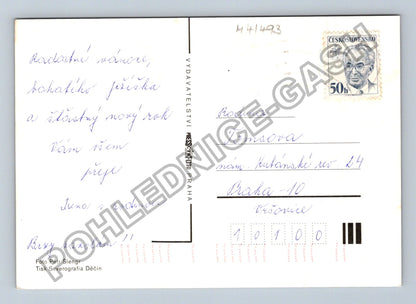 M4/493
Radostné vánoce,
bohatého ježíška
a šťastný nový rok
Vám všem
přeje
Irena s rodinou
Brzy !!
Foto Petr
Tisk Severografia Děčín
VYDAVATELSTVÍ PRAHA
ČESKOSLOVENSKO
50h
Rodina
nám. Kubánské rev. 24
Praha - 10
Vršovice
10100
POHLEDNICE-GASH